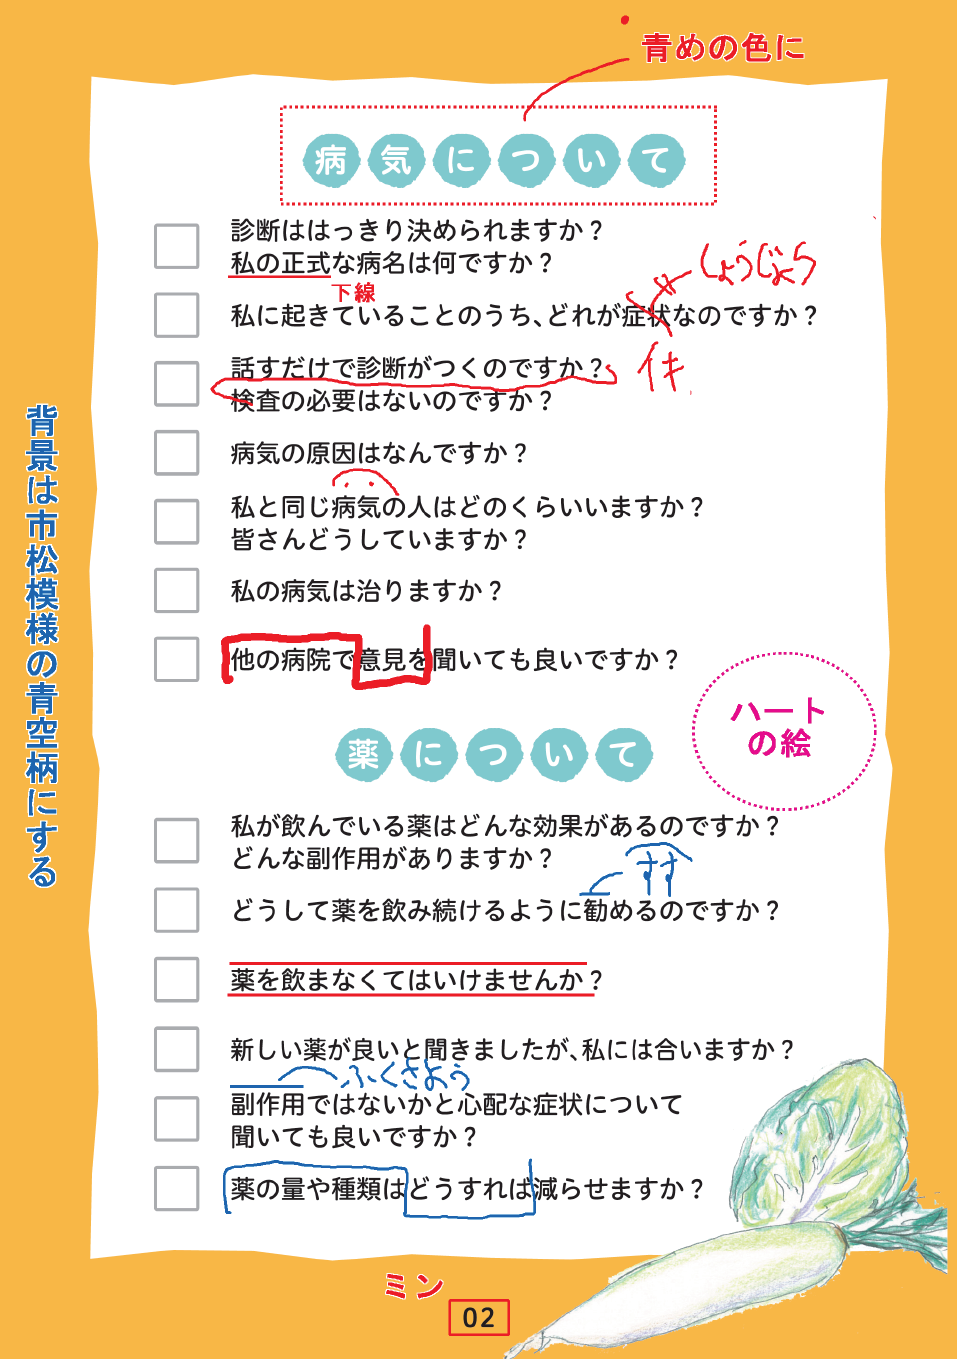 青めの色に
病気について
診断ははっきり決められますか？
私の正式な病名は何ですか？
下線
しょうじょう
私に起きていることのうち、どれが症状なのですか？
話すだけで診断がつくのですか？
件
検査の必要はないのですか？
病気の原因はなんですか？
私と同じ病気の人はどのくらいいますか？
皆さんどうしていますか？
私の病気は治りますか？
他の病院で意見を聞いても良いですか？
背景は市松模様の青空柄にする
ハート
の絵
薬について
私が飲んでいる薬はどんな効果があるのですか？
どんな副作用がありますか？
すす
どうして薬を飲み続けるように勧めるのですか？
薬を飲まなくてはいけませんか？
新しい薬が良いと聞きましたが、私には合いますか？
ふくさよう
副作用ではないかと心配な症状について
聞いても良いですか？
薬の量や種類はどうすれば減らせますか？
ミン
02